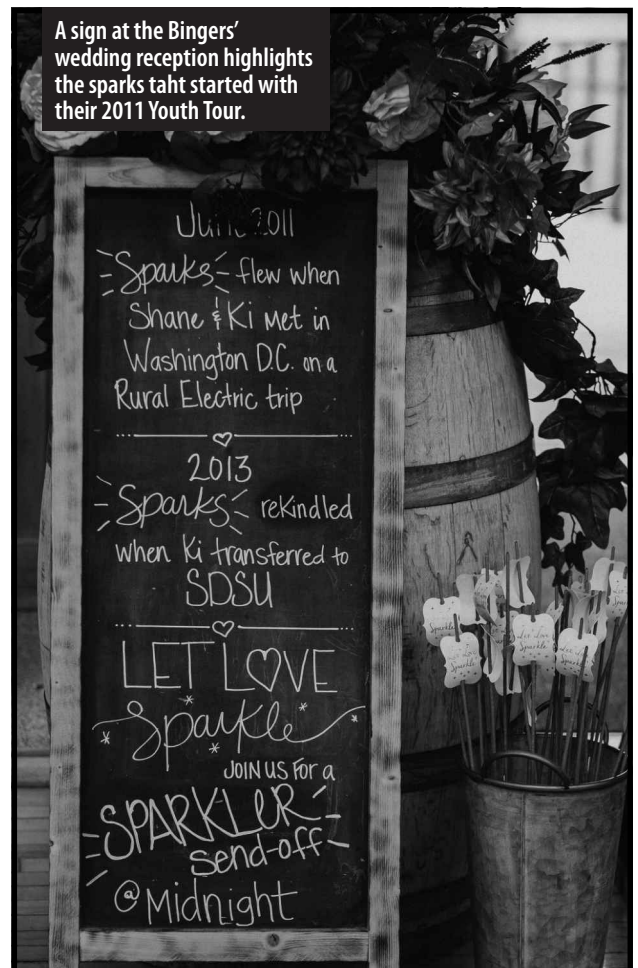 A sign at the Bingers’
wedding reception highlights
the sparks taht started with
their 2011 Youth Tour.
June 2011
Sparks flew when
Shane & Ki Met in
Washington D.C. on a
Rural Electric trip
2013
Sparks rekindled
when Ki transferred to
SDSU
LET LOVE
Sparkle
JOIN US For a
SPARKLER
Send-off
@ Midnight
Sparkle
Sparkle
Sparkle